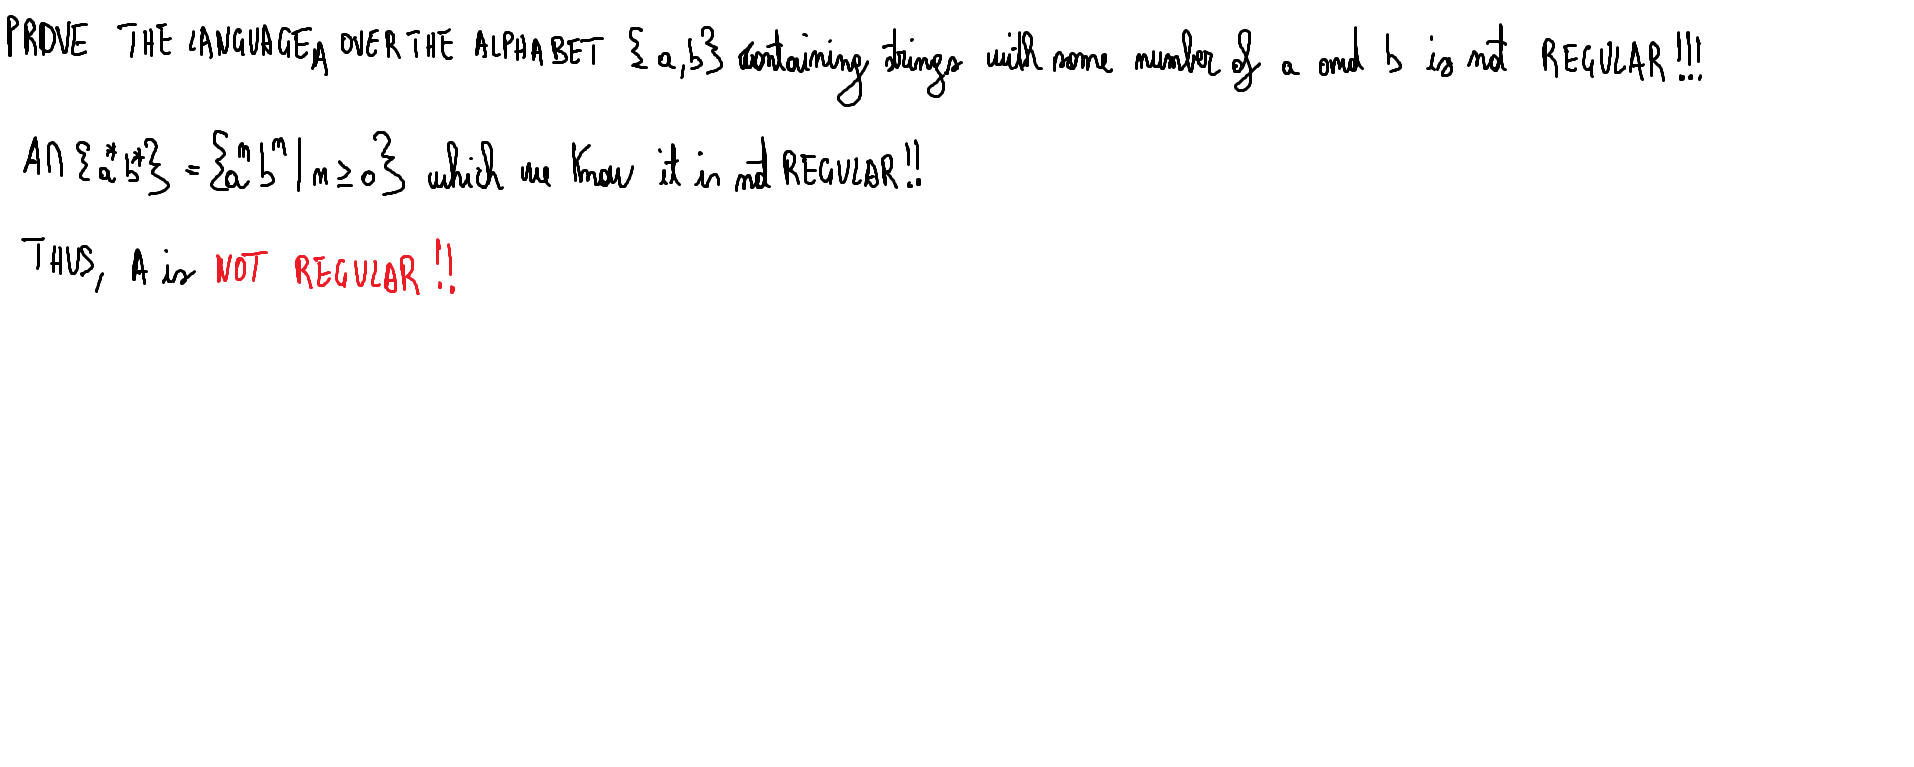 PROVE THE LANGUAGE A OVER THE ALPHABET {a,b} containing strings with same number of a and b is not REGULAR!!!
A∩{a*b*} = {aⁿbⁿ | n ≥ 0} which we know it is not REGULAR!!
THUS, A is NOT REGULAR!!